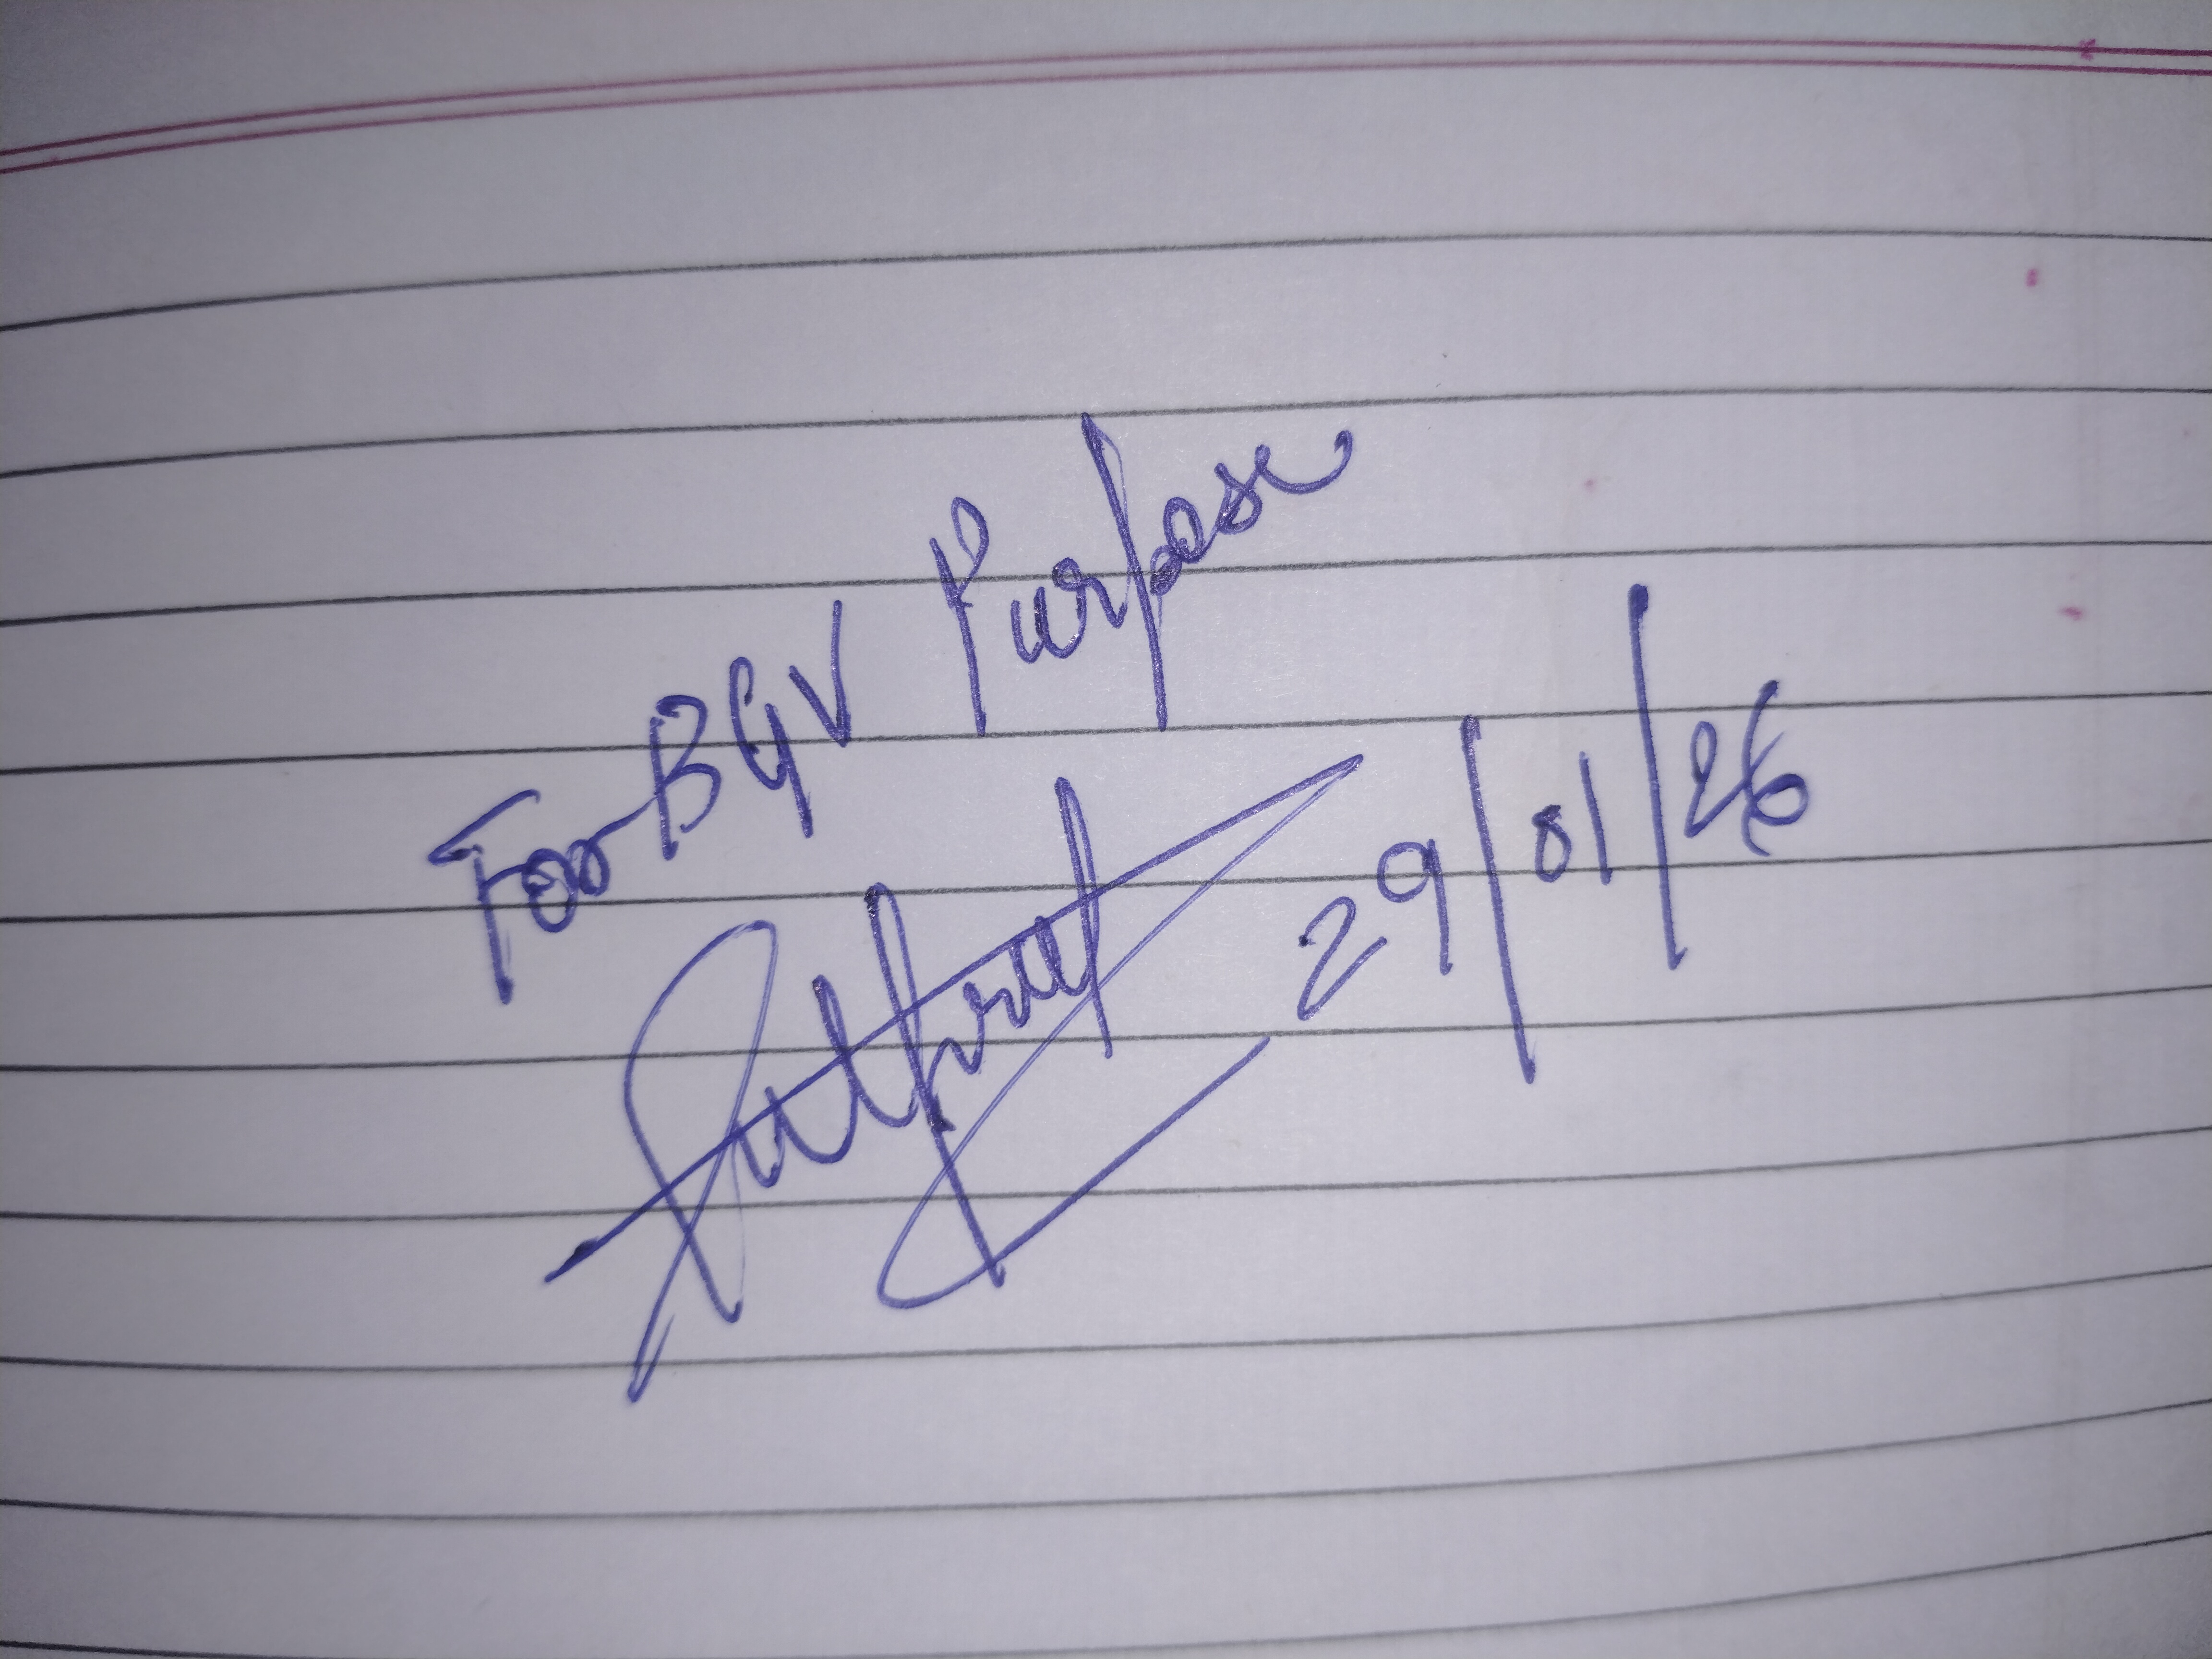 For BGV Purpose
29/01/26